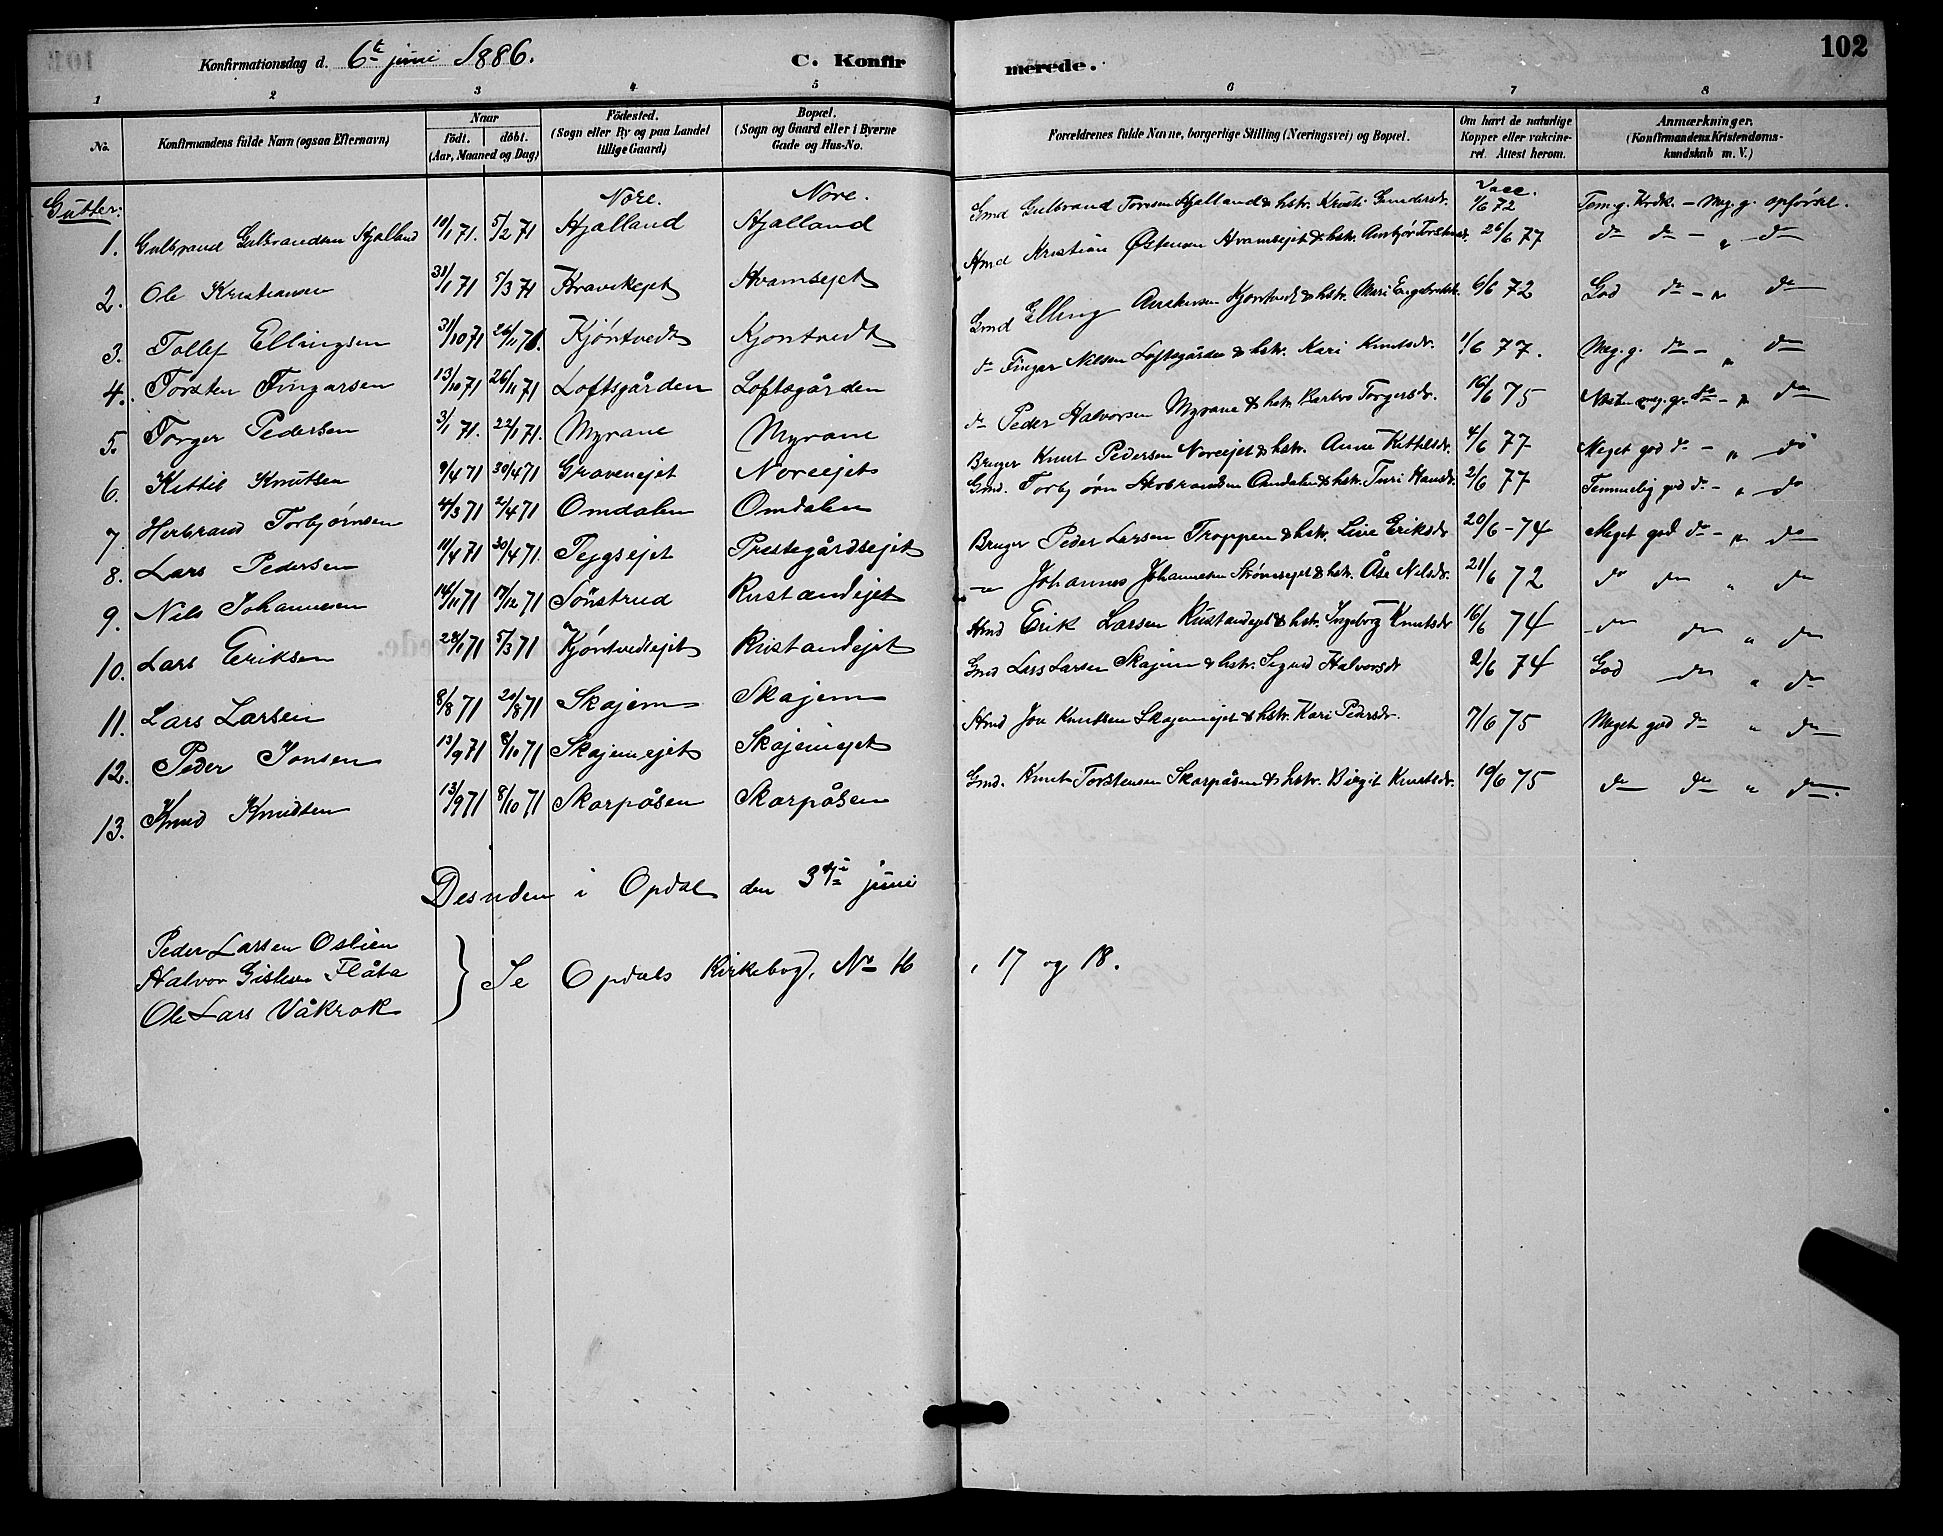 Konfirmationsdag d. 6te juni 1886. C. Konfirmerede. 102
1 2 3 4 5 6 7 8
No. Konfirmandens fulde Navn (ogsaa Efternavn) Naar født. døbt. (Aar, Maaned og Dag) Födested. (Sogn eller By og paa Landet tillige Gaard) Bopæl. (Sogn og Gaard eller i Byerne Gade og Hus-No. Forældrenes fulde Navne, borgerlige Stilling (Næringsvei) og Bopæl. Om havt de naturlige Kopper eller vakcineret. Attest herom. Anmærkninger. (Konfirmandens Kristendomskundskab m. V.)
Gutter: Nore. Nore. Vacc.
1. Gulbrand Gulbrandsen Hjalland 10/1 71. 5/2 71 Hjalland Hjalland Gmd Gulbrand Toresen Hjalland & hstr. Kristi Gundersdr. 1/6 72 Tem. g. Krdk. - Meg. g. opførsel.
2. Ole Kristiansen 31/1 71 5/3 71 Kravikejet Hvamsejet Hmd Kristian Østensen Hvamsejet & hstr. Torstensd. 26/6 77 do do - " do
3. Tollef Ellingsen 31/10 71 26/11 71. Kjöntvedt Kjöntvedt Gmd Elling Kjöntvedt & hstr. Mari Engebretsd. 6/6 72 God do - " do
4. Torsten Fingarsen 13/10 71 26/11 71 Loftsgården Loftsgården do Fingar Nilsen Loftsgården & hstr. Kari Knutsdr. 1/6 77. Meg. g. do - " do
5. Torger Pedersen 3/1 71. 22/1 71. Myrane Myrane do Peder Halvorsen Myrane & hstr. Barbro Torgersdr. 16/6 75 meg. g. do - " do
6. Kittil Knutsen 9/4 71 30/4 71 Gravenejet Noreejet Bruger Knut Pedersen Noreejet & hstr. Anne Kittelsdr. 4/6 77 Meget god do - " do
7. Herbrand Torbjørnsen 4/3 71 2/4 71 Omdalen Omdalen Gmd. Torbjörn Herbrandsen Omdalen & hstr. Turi Hansdr. 2/6 77 Temmelig god do - " do
8. Lars Pedersen 11/4 71 30/4 71. Tejgsejet Prestegårdsejet Bruger Peder Larsen Troppen & hstr. Live Eriksdr. 20/6 - 74 Meget god do - " do
9. Nils Johannesen 16/11 71 17/12 71 Sönstrud Rustandejet - " Johannes Johannesen Strömsejet & hstr. Åse Nilsdr. 21/6 72 do do " do
10. Lars Eriksen 28/1 71 5/3 71 Kjöntvedtejet Rustandejet Hmd Erik Larsen Rustandejet & hstr. Ingeborg Knutsdr 16/6 74 do do " do
11. Lars Larsen 8/8 71 20/8 71 Skajem Skajem Gmd Lars Larsen Skajem & hstr. Sigrid Halvorsdr 2/6 74 God do " do
12. Peder Jonsen 13/9 71 8/10 71 Skajemejet Skajemejet Hmd Jon Knutsen Skajemejet & hstr. Kari Pedersdr. 7/6 75 Meget god do " do
13. Knud Knudsen 13/9 71 8/10 71 Skarpåsen Skarpåsen Gmd. Knut Torstensen Skarpåsen & hstr. Birgit Knutsdr. 19/6 75 do do " do.
Desuden i Opdal den 3die juni
Peder Larsen Oslien
Halvor Gislesen Flåta } Se Opdals Kirkebog, No 16, 17 og 18.
Ole Lars Våkrok